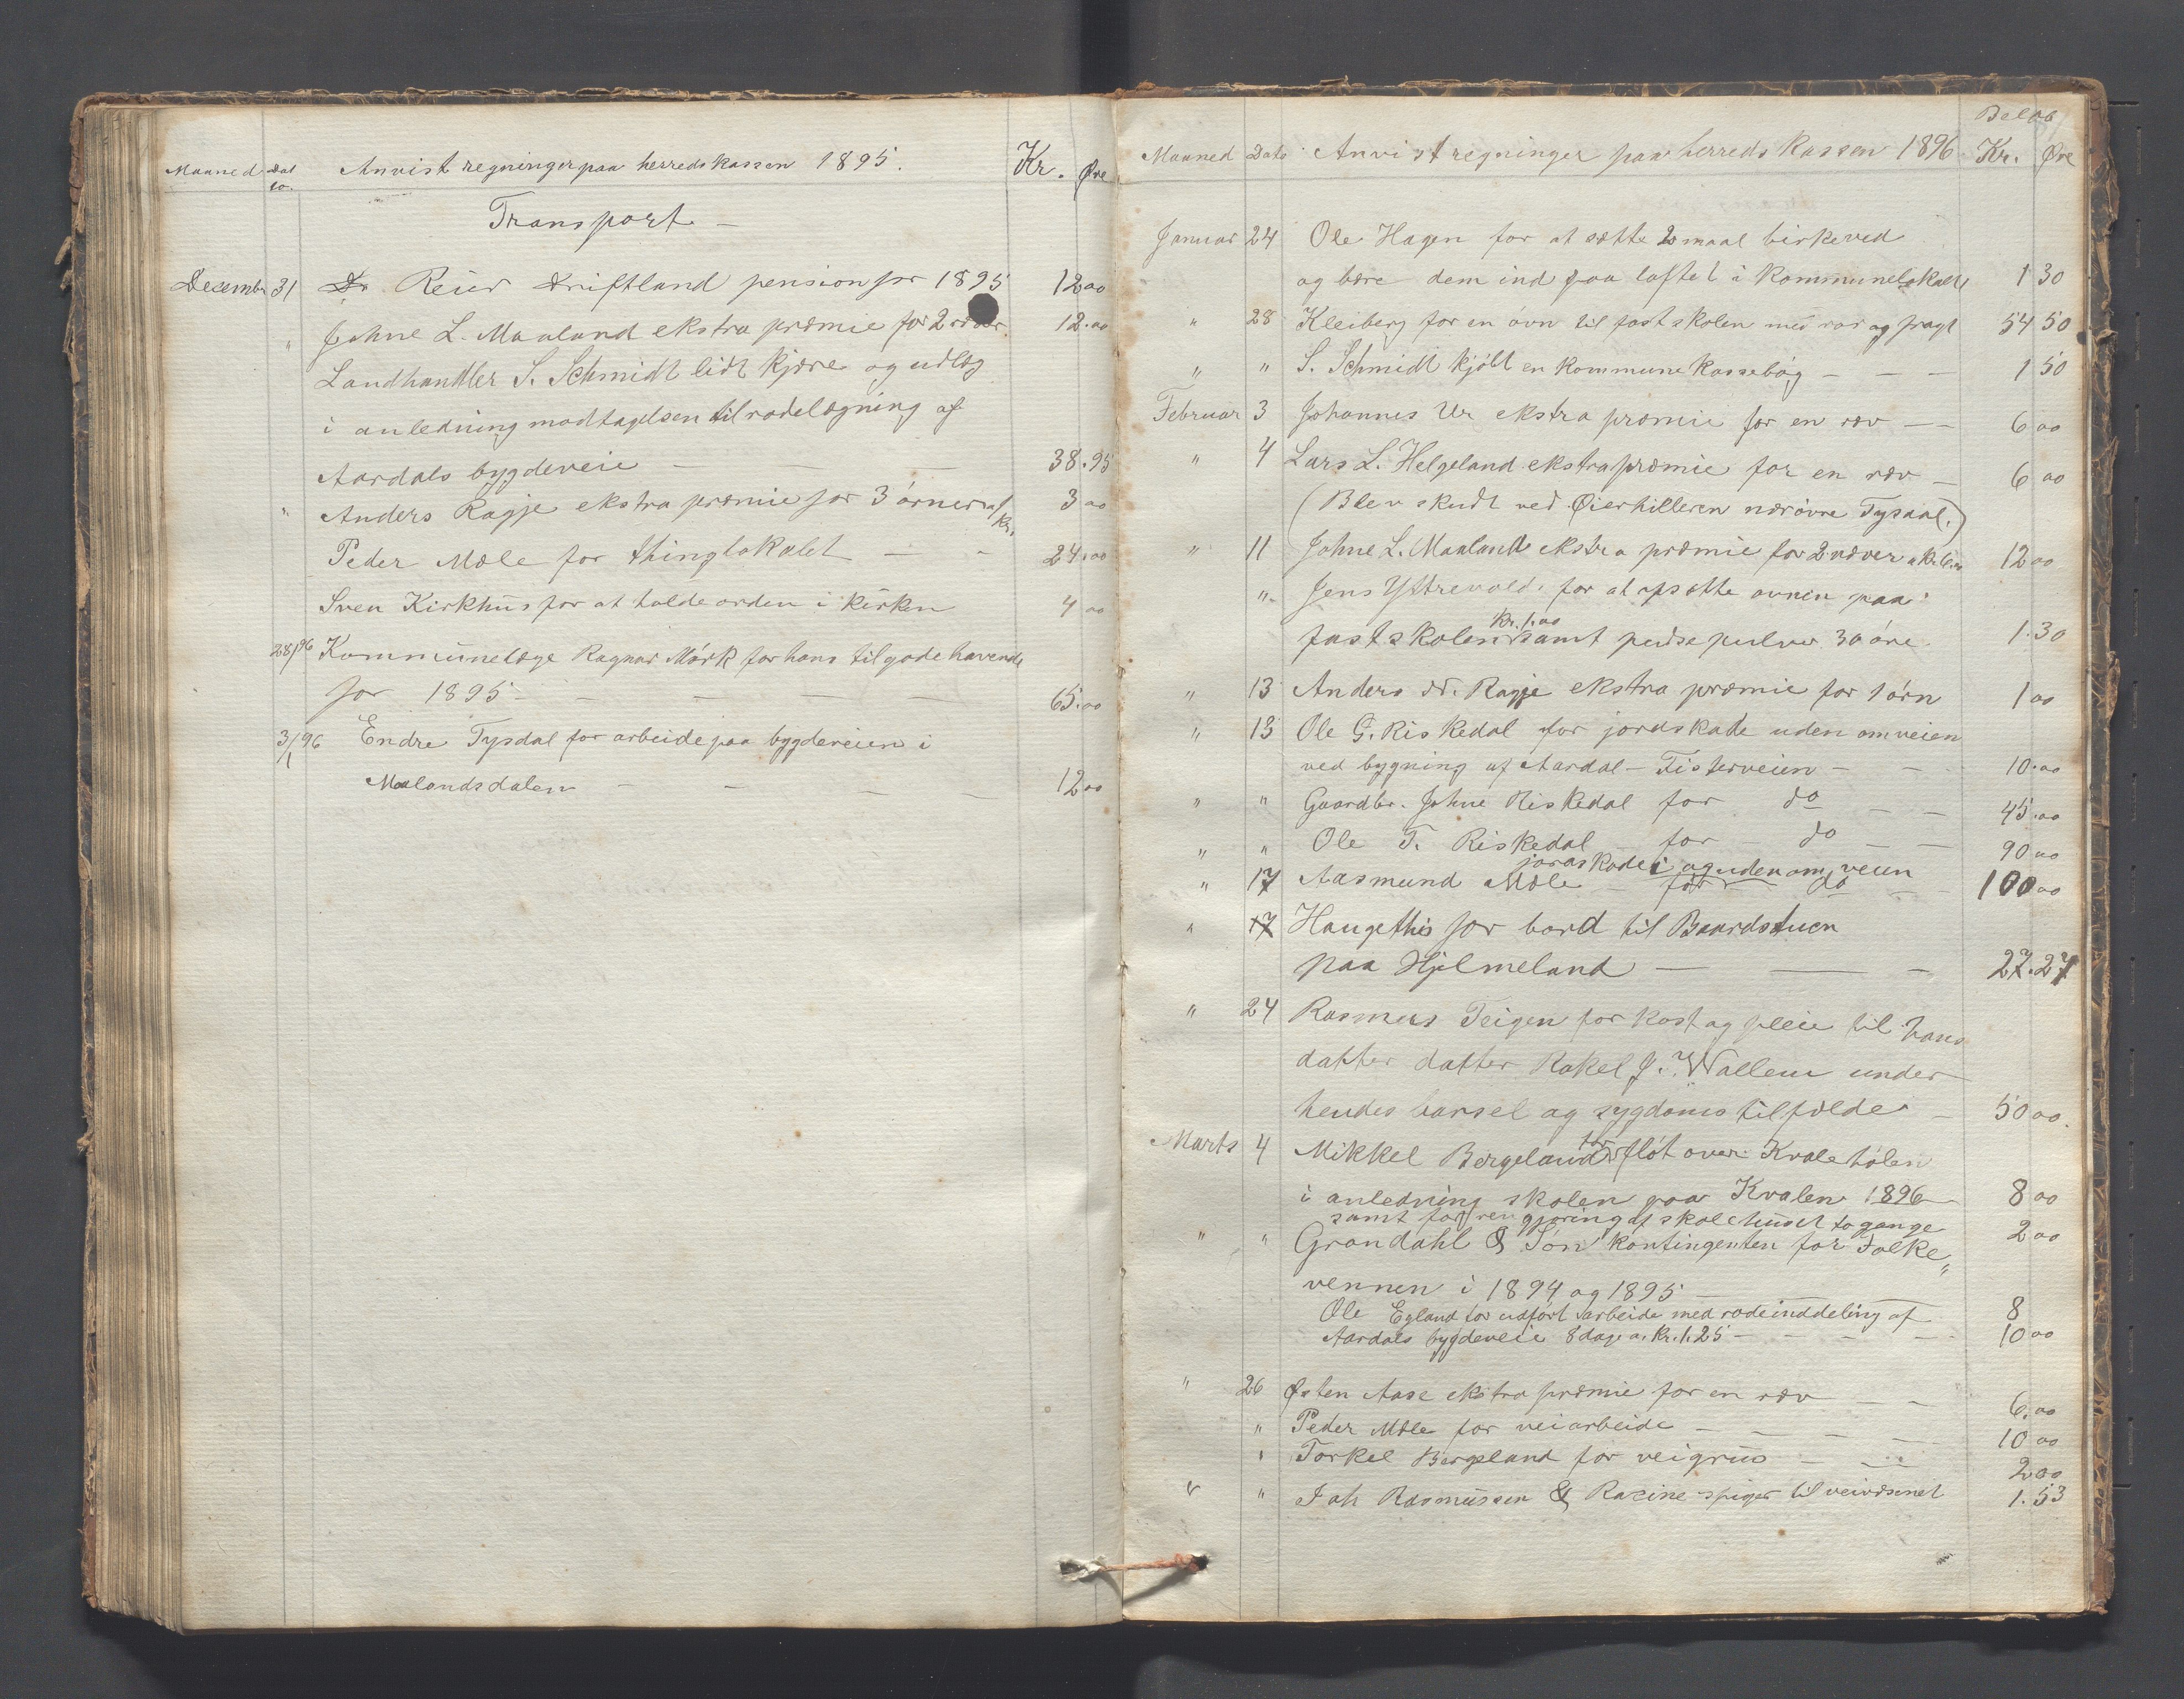 Maaned Dato. Anvist regninger paa herredskassen 1895. Kr. Øre
Transport —
Decembr 31 Dr. Reier Driftland pension for 1895 12 00
" Johne L. Maaland ekstra præmie for 2 ræver 12.00
Landhandler S. Schmidt lidt kjøre og udlæg
i anledning modtagelsen til rodelægning af
Aardals bygdeveie — — — 38.95
" Anders Ragje ekstra præmie for 3 ørner a/ Kr. 3 00
Peder Mæle for thinglokalet — - 24.00
Sven Kirkhus for at holde orden i kirken 4 00
28/1 96 Kommunelæge Ragnar Mørk for hans tilgodehavende
for 1895 — — — — — 65.00
3/1 96 Endre Tysdal for arbeide paa bygdeveien i
Maalandsdalen — — — — 12 00
Beløb
Maaned Dato Anvist regninger paa herredskassen 1896 Kr. Øre
Januar 24 Ole Hagen for at sætte 2 maal birkeved
og bære dem ind paa loftet i kommunelokalet 1 30
" 28 Kleiberg for en ovn til fastskolen med rør og fragt 54 50
" " S. Schmidt kjøbt en kommune kassebog — — — 1 50
Februar 3 Johannes Ur ekstra præmie for en ræv — — 6 00
" 4 Lars L. Helgeland ekstra præmie for en ræv — 6 00
(Blev skudt ved Øierhilleren nær øvre Tysdal.)
" 11 Johne L. Maaland ekstra præmie for 2 ræver a kr. 6.00 12 00
" Jens Yttrevold. for at opsætte ovnen paa
fastskolen kr. 1.00 samt pudsepulver 30 øre. 1.30
" 13 Anders N. Ragje ekstra præmie for 1 ørn 1 00
" 13 Ole G. Riskedal for jordskade uden om veien
ved bygning af Aardal - Fisterveien — — 10.00
" " Gaardbr. Johne Riskedal for do — — 45.00
" " Ole T. Riskedal for - do — — 90 00
jordskade i og uden om veien
" 17 Aasmund Mæle - for do — 100 00
" 17 Haugethis for bord til Baardstuen
paa Hjelmeland — — — 27.27
" 24 Rasmus Teigen for kost og pleie til hans
datter datter Rakel J. Wallem under
hendes barsel og sygdoms tilfælde — 50 00.
Marts 4 Mikkel Bergeland for fløt over Kvalehølen
i anledning skolen paa Kvalen 1896 8 00
samt for rengjøring af skolehuset to gange 2 00
" " Grøndahl & Søn kontingenten for Folke„
vennen i 1894 og 1895 — — 8
Ole Egland for udført arbeide med rodeinddeling af
Aardals bygdeveie 8 dage a. Kr. 1.25 — — — — 10 00
" 26 Østen Aase ekstra præmie for en ræv — — 6.00
" Peder Mæle for veiarbeide — — — — 10 00
" Torkel Bergeland for veigrus — — 2 00
" " Joh Rasmussen & Racine spiger til veivæsenet 1.53